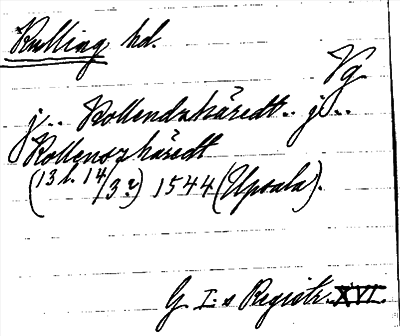 Kulling hd.
Vg
j.. Kollendzhäredt.. j..
Kollenszhäredt
(13 h. 14/3 2) 1544 (Upsala).
G. I:s Registr. XVI.